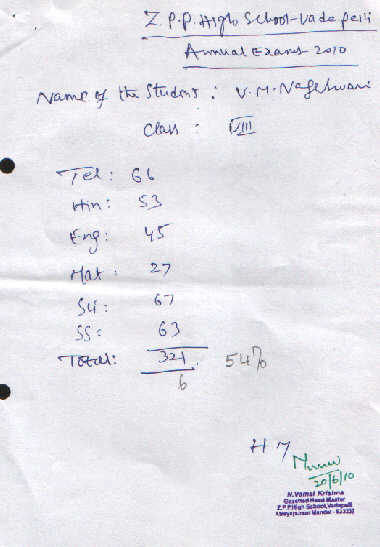 Z.P.P. High School-Vadapalli
Annual Exams-2010
Name of the Student : V.M. Nageshwari
Class : VIII
Tel : 66
Hin : 53
Eng : 45
Mat : 27
Sci : 67
SS : 63
Total : 321 54%
6
HM
20/6/10
N.Vamsi Krishna
Gazetted Head Master
Z.P.P.High School, Vadapalli
Mandal